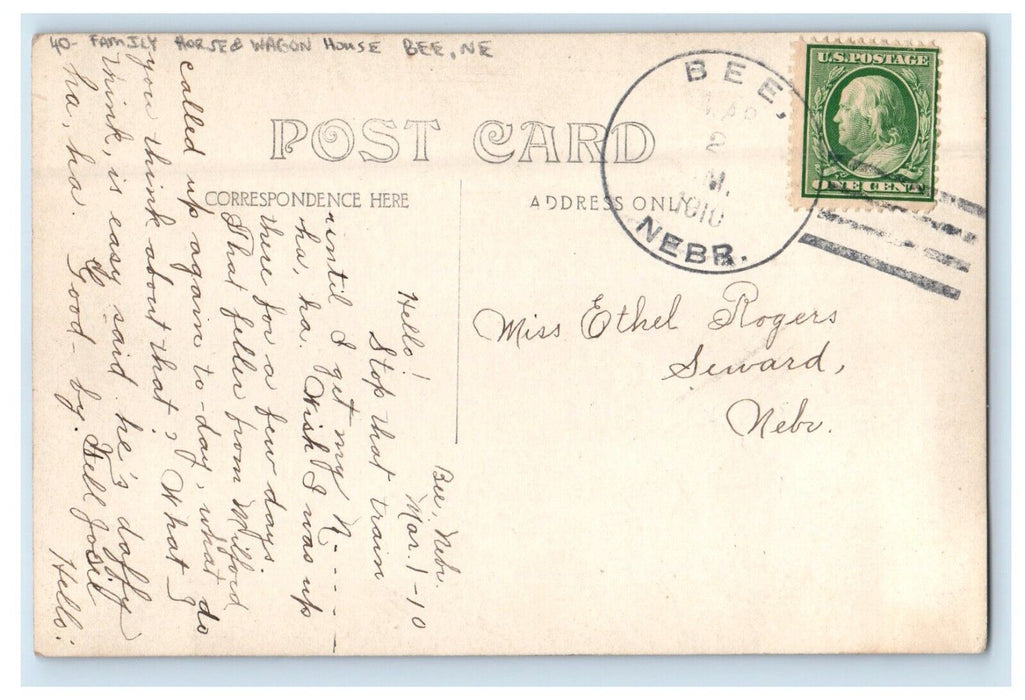 40- FAMILY HORSE & WAGON HOUSE BEE, NE
POST CARD
CORRESPONDENCE HERE
ADDRESS ONLY
BEE,
MAR
2
M.
1910
NEBR.
U.S. POSTAGE
ONE CENT
Miss Ethel Rogers
Seward,
Nebr.
Bee, Nebr.
Mar. 1-10
Hello!
Stop that train
rintil I get my N----
ha, ha. Wish I was up
there for a few days.
That feller from Milford
called up again to-day, what do
you think about that? What I
think, is easy said he's daffy
ha, ha. Good-by. Tell Josie
Hello: